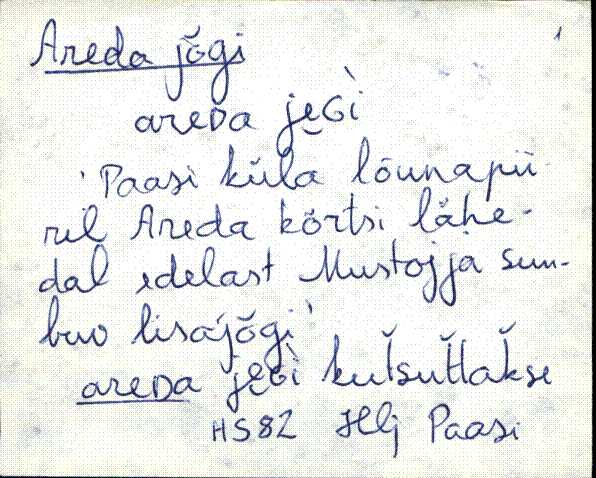 Areda jõgi
areᴅa je̮ɢì
'Paasi küla lõunapii-
ril Areda kõrtsi lähe-
dal edelast Mustojja suu-
buv lisajõgi'
areᴅa je̮ɢì kutsuttakse
HS82 Hlj Paasi